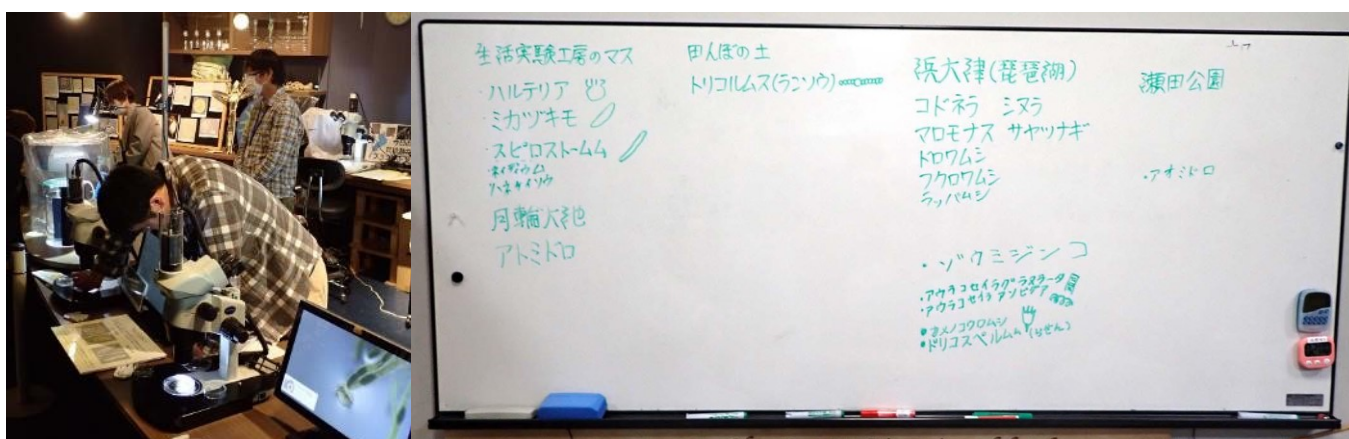 生活実験工房のマス
・ハルテリア
・ミカヅキモ
・スピロストームム
・ネイディウム
・ハネケイソウ
月輪大池
アトミドロ
田んぼの土
トリコルムス(ランソウ)
浜大津(琵琶湖)
コドネラ シヌラ
マロモナス サヤツナギ
ドロワムシ
フクロワムシ
ラッパムシ
・ゾウミジンコ
・アウラコセイラグラヌラータ
・アウラコセイラ アンビグア
・カメノコウワムシ
・ドリコスペルムム(らせん)
瀬田公園
・アオミドロ